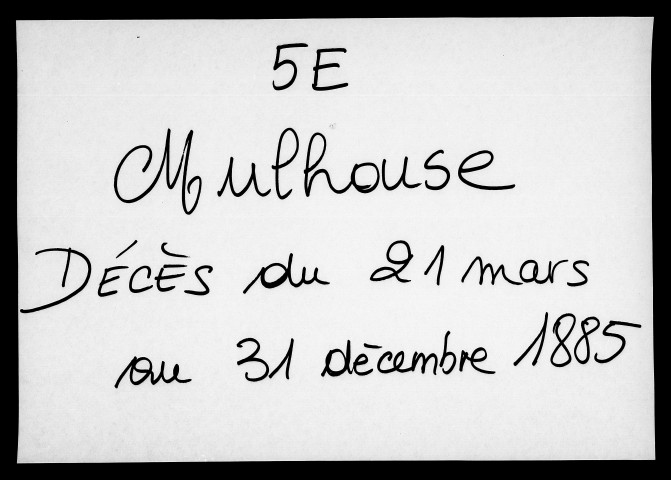 5E
Mulhouse
DÉCÈS du 21 mars
au 31 décembre 1885